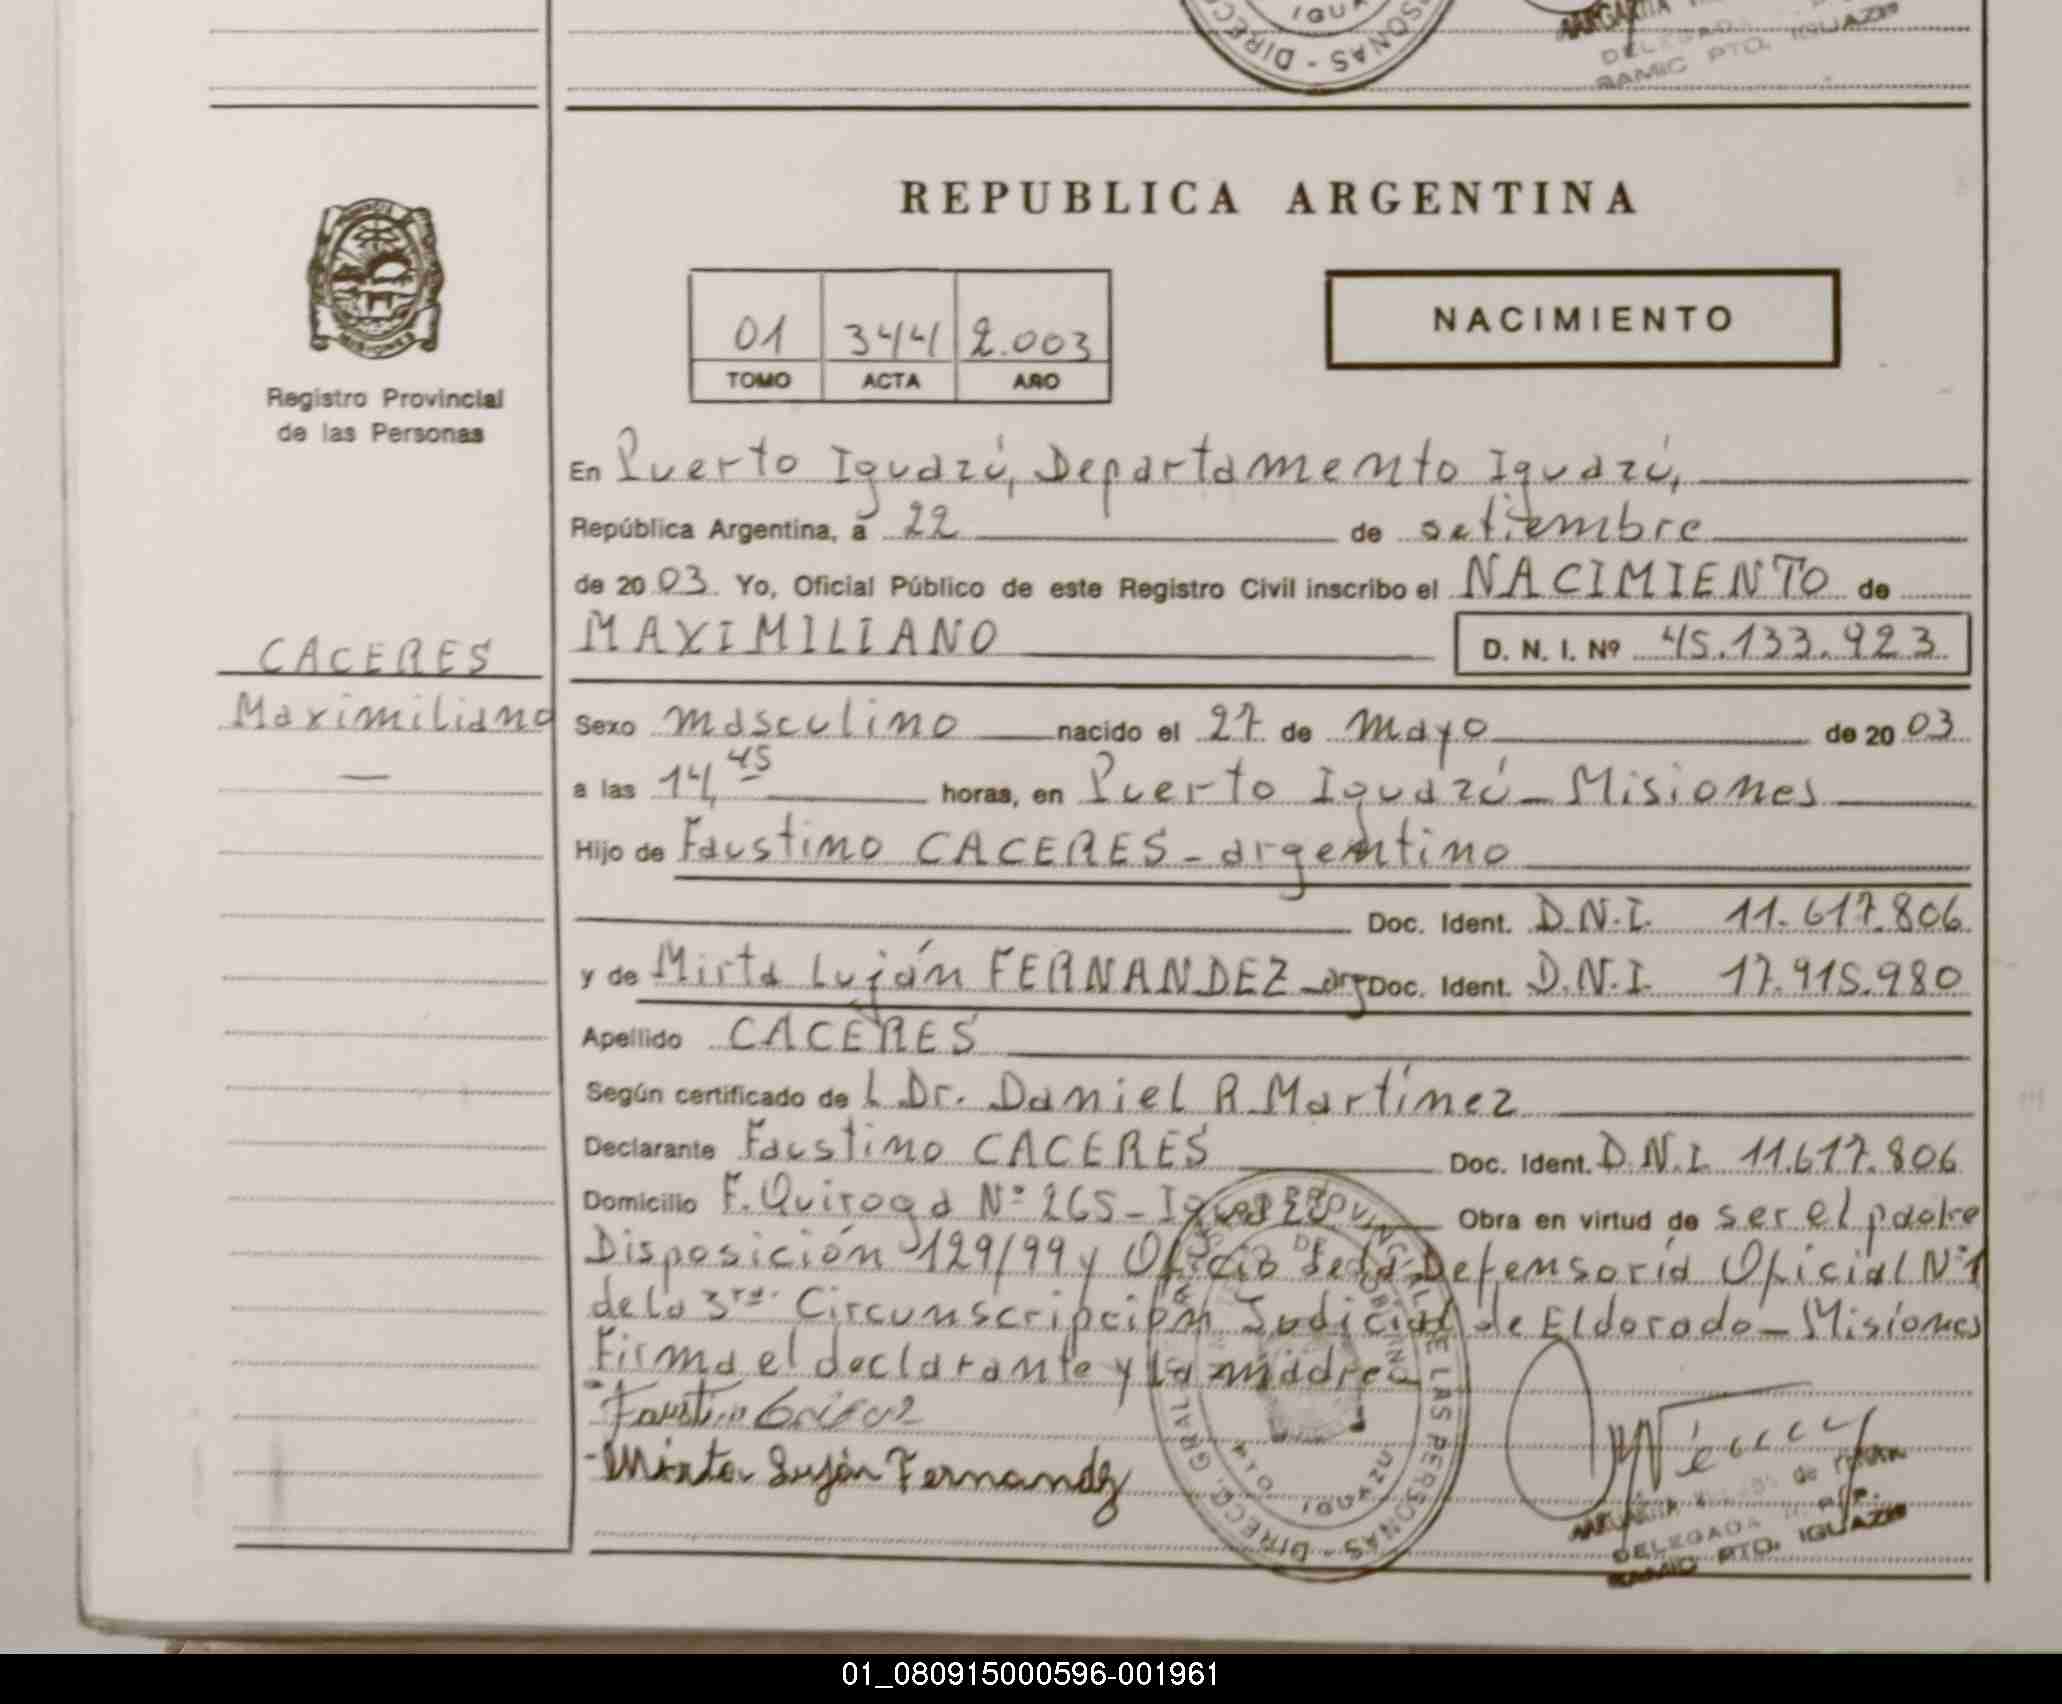 IGUA
DIRECC
SONAS -
MARGARITA
DELEGADA
RAMIC PTO. IGUAZU
REPUBLICA ARGENTINA
MISIONES
Registro Provincial
de las Personas
01 344 2.003
TOMO ACTA AÑO
NACIMIENTO
En Puerto Iguazú, Departamento Iguazú,
República Argentina, a 22 de setiembre
de 20 03. Yo, Oficial Público de este Registro Civil inscribo el NACIMIENTO de
MAXIMILIANO D. N. I. Nº 45.133.923
CACERES
Maximiliano
Sexo masculino nacido el 27 de mayo de 20 03
a las 14,45 horas, en Puerto Iguazú - Misiones
Hijo de Faustino CACERES - argentino
Doc. Ident. D.N.I. 11.617.806
y de Mirta Luján FERNANDEZ - arg Doc. Ident. D.N.I. 17.915.980
Apellido CACERES
Según certificado de L Dr. Daniel R Martínez
Declarante Faustino CACERES Doc. Ident. D.N.I. 11.617.806
Domicilio F. Quiroga Nº 265 - Iguazú Obra en virtud de ser el padre
Disposición 129/99 y Oficio de la Defensoría Oficial Nº 1
de la 3ra. Circunscripción Judicial de Eldorado - Misiones
Firma el declarante y la madre
Faustino
- Mirta Luján Fernandez
DE LAS PERSONAS - DIRECC. GRAL.
PTO. IGUAZU
DELEGADA R.P.P.
RAMIC PTO. IGUAZU
01_080915000596-001961